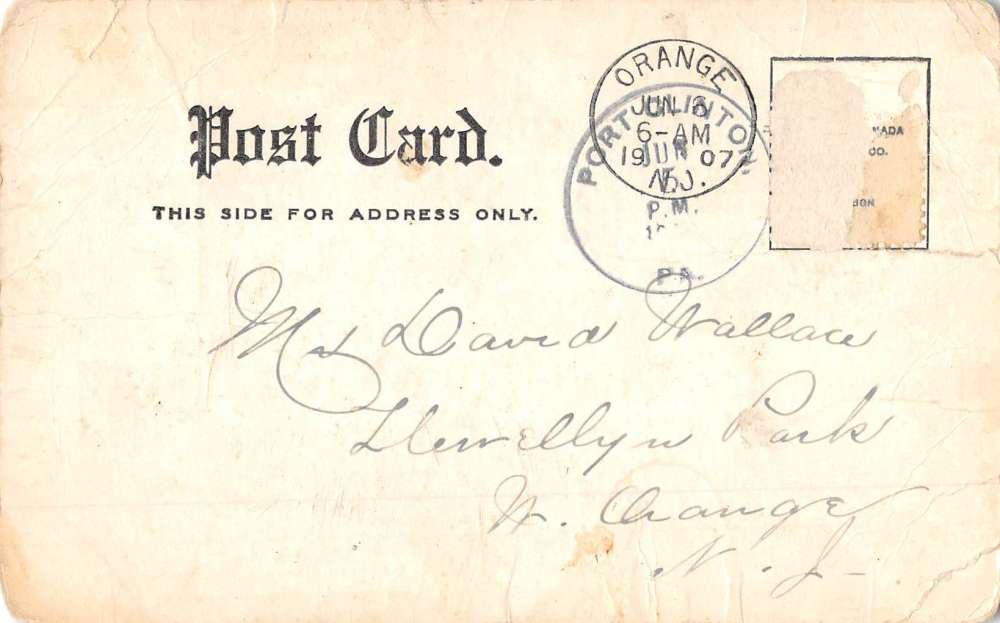 Post Card.
THIS SIDE FOR ADDRESS ONLY.
ORANGE
JUN
6-AM
19 07
N.J.
PORT CLINTON
JUN
5
P.M.
PA.
NADA
CO.
Mrs David Wallace
Llewellyn Park
W. Orange
N. J.